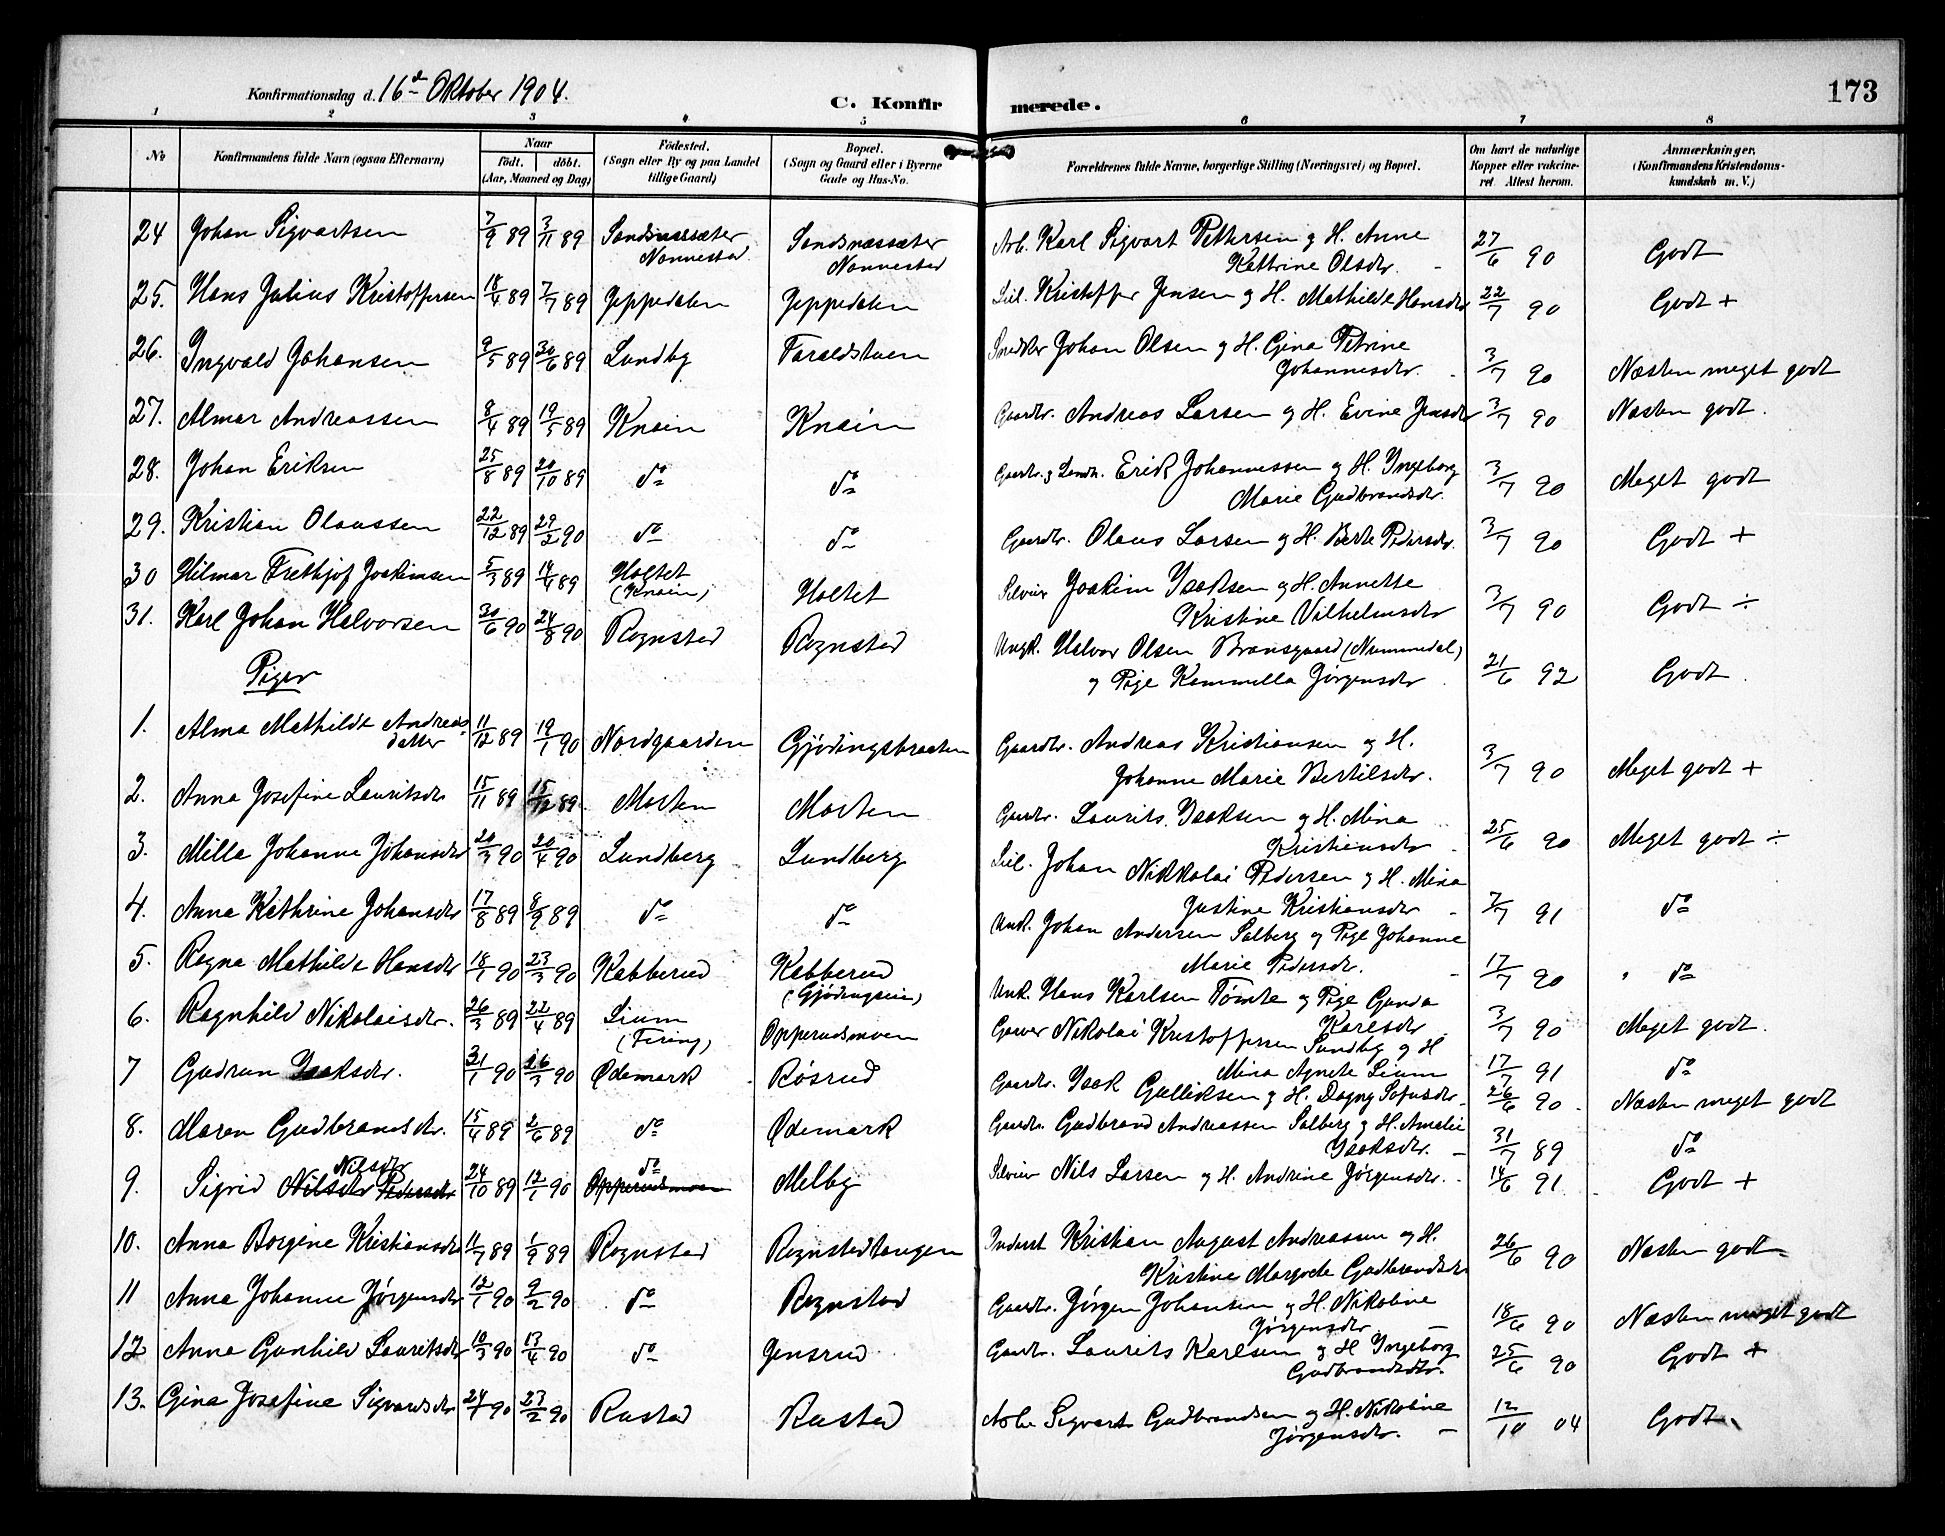 Konfirmationsdag d. 16d Oktober 1904.
C. Konfirmerede.
173
1 2 3 4 5 6 7 8
No
Konfirmandens fulde Navn (ogsaa Efternavn)
Naar
födt. döbt.
(Aar, Maaned og Dag)
Födested.
(Sogn eller By og paa Landet
tillige Gaard)
Bopæl.
(Sogn og Gaard eller i Byerne
Gade og Hus-No.
Forældrenes fulde Navne, borgerlige Stilling (Næringsvei) og Bopæl.
Om havt de naturlige
Kopper eller vakcine-
ret. Attest herom.
Anmærkninger,
(Konfirmandens Kristendoms-
kundskab m. V.)
24 Johan Sigvartsen 7/9 89 3/11 89 Sandsnæssæter Nannestad Sandsnæssæter Nannestad Arb. Karl Sigvart Pettersen og H. Anne Kathrine Olsdtr. 27/6 90 Godt
25. Hans Julius Kristoffersen 18/4 89 7/7 89 Jeppedalen Jeppedalen Sel. Kristoffer Jensen og H. Mathilde Hansdtr 22/7 90 Godt +
26. Ingvald Johansen 9/5 89 30/6 89 Lundby Faraldstuen Snedker Johan Olsen og H. Gina Petrine Johannesdtr. 3/7 90 Næsten meget godt
27. Almar Andreassen 8/4 89 19/5 89 Knain Knain Gaardbr. Andreas Larsen og H. Evine Jensdtr 3/7 90 Næsten godt.
28. Johan Eriksen 25/8 89 20/10 89 do do Gaardbr. og Landh. Erik Johannessen og H. Ingeborg Marie Gudbrandsdtr. 3/7 90 Meget godt
29. Kristian Olaussen 22/12 89 29/2 90 do do Gaardbr. Olaus Larsen og H. Berte Pedersdtr. 3/7 90 Godt +
30 Hilmar Frethjof Joakimsen 5/3 89 14/4 89 Holtet (Knain) Holtet Selveier Joakim Isaksen og H. Annette Kristine Vilhelmsdtr 3/7 90 Godt ÷
31. Karl Johan Halvorsen 30/6 90 24/8 90 Rognstad Rognstad Ungk. Halvor Olsen Bransgaard (Nummedal) og Pige Kammilla Jørgensdtr. 21/6 92 Godt
Piger
1. Alma Mathilde Andreasdatter 11/12 89 19/1 90 Nordgaarden Gjødingsbraaten Gaardbr. Andreas Kristiansen og H. Johanne Marie Bertilsdtr. 3/7 90 Meget godt +
2. Anna Josefine Lauritsdtr 15/11 89 15/12 89 Morten Morten Gaardbr. Laurits Isaksen og H. Mina Kristiansdtr 25/6 90 Meget godt ÷
3. Milla Johanne Johansdtr 20/3 90 20/4 90 Lundberg Lundberg Sel. Johan Nikkolai Pedersen og H. Mina Justine Kristiansdtr 7/7 91 do
4. Anna Kathrine Johansdtr 17/8 89 8/9 89 do do Unk. Johan Andersen Solberg og Pige Johanne Marie Pedersdtr. 17/7 90 do
5. Ragna Mathilde Hansdtr 18/1 90 23/3 90 Kabberud Kabberud (Gjødingseie) Unk. Hans Karlsen Tømte og Pige Gunda Karlsdtr 3/7 90 Meget godt.
6. Ragnhild Nikolaisdtr. 26/3 89 22/4 89 Lium (Firing) Opperudsmoen Garver Nikolai Kristoffersen Sundby og H Mina Agnete Lium 17/7 91 do
7 Gudrun Isaksdtr. 31/1 90 26/3 90 Ødemark Røsrud Gaardbr. Isak Gulliksen og H. Dagny Sofusdtr 26/6 90 Næsten meget godt
8. Maren Gudbrandsdtr. 15/4 89 2/6 89 do Ødemark Gaardbr. Gudbrand Andreassen Solberg og H. Amalie Isaksdtr. 31/7 89 do
9. Sigrid Nilsdtr Pedersdtr Nilsdtr 24/10 89 12/1 90 Opperudsmoen do Melby Selveier Nils Larsen og H. Andrine Jørgensdtr. 14/6 91 Godt +
10. Anna Borgine Kristiansdtr 11/7 89 1/9 89 Rognstad Rognstadtangen Inderst Kristian August Andreassen og H. Kristine Margrete Gudbrandsdtr 26/6 90 Næsten godt
11 Anna Johanne Jørgensdtr 12/1 90 9/2 90 do Rognstad Gaardbr. Jørgen Johansen og H. Nikoline Jørgensdtr 18/6 90 Næsten meget godt
12 Anna Gunhild Lauritsdtr 10/3 90 13/4 90 do Jensrud Gaardbr. Laurits Karlsen og H Ingeborg Gudbrandsdtr. 25/6 90 Godt +
13. Gina Josefine Sigvardsdtr 24/1 90 23/2 90 Rustad Rustad Arbe Sigvart Gudbrandsen og H. Nikoline Jørgensdtr. 12/10 04 Godt